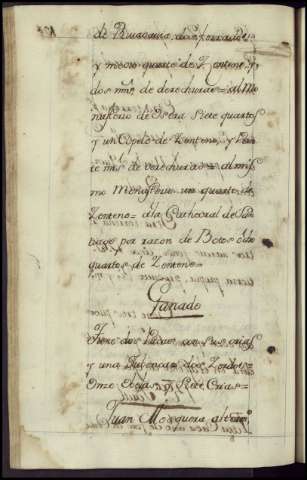 de Ruuanio, dos ferrados
y medio quarto de Zenteno, y
dos mrs. de derechuras = al Mo
nasterio de Osera siete quartos
y un Copelo de Zenteno, y
te mrs. de derechuras = al mis
mo Monasterio un quarto de
Zenteno = a la Cathedral de San
tiago por razon de Botos
quartos de Zenteno =
Ganado
Tiene dos Vacas con sus crias
y una dos Zerdos =
Onze Obejas, y Siete Crias =
Juan Mosquera